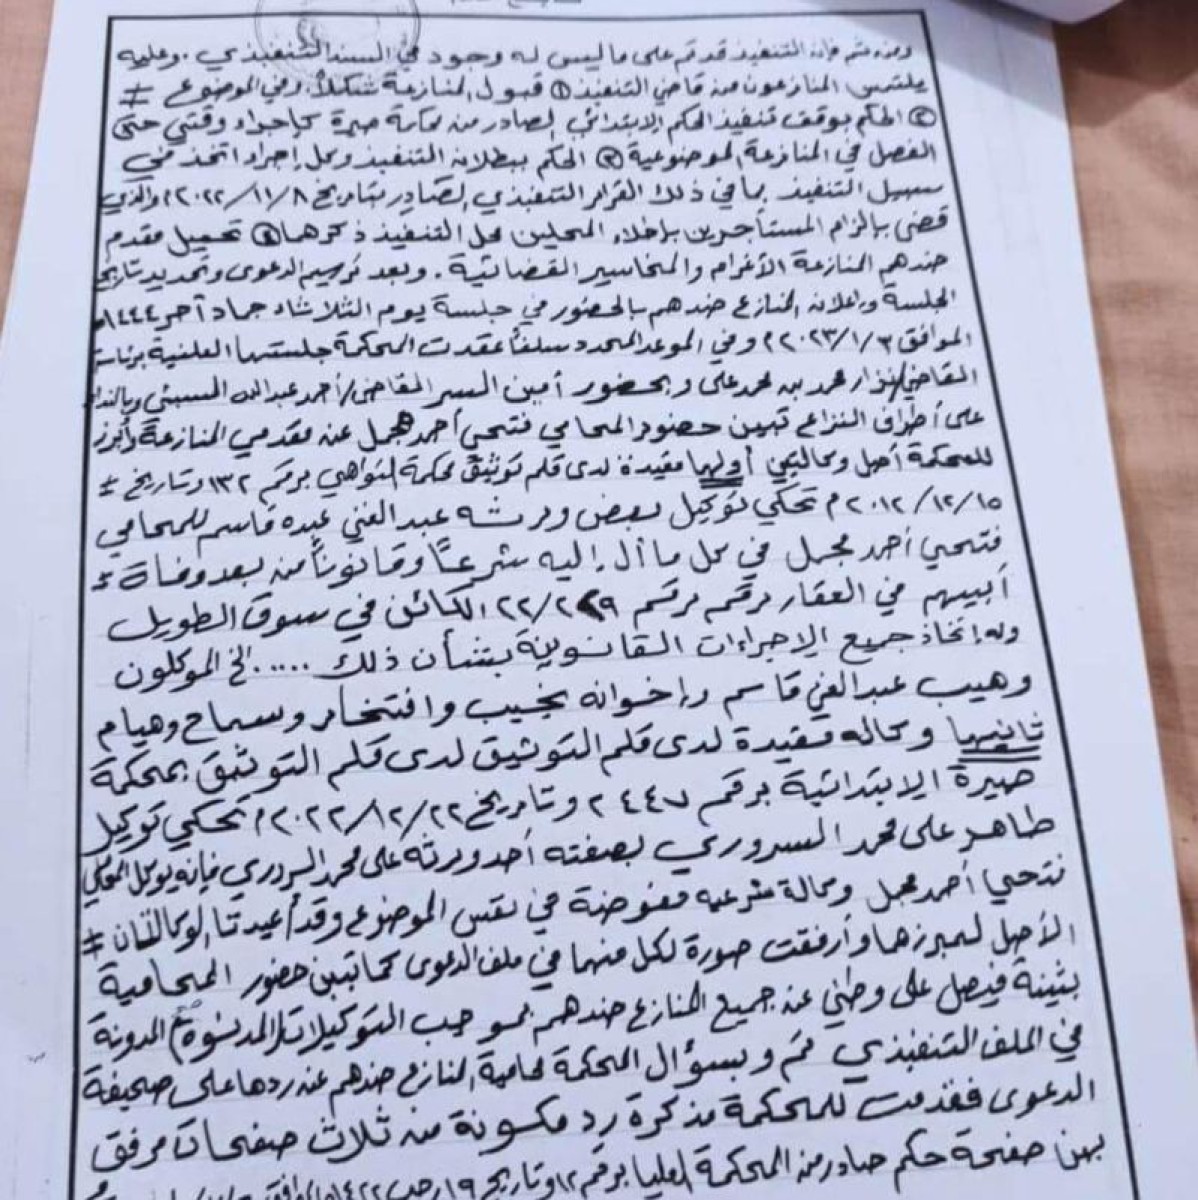 ومن ثم فإن التنفيذ قد تم على ما ليس له وجود في السند التنفيذي . وعليه
يلتمس المنازعون من قاضي التنفيذ ① قبول المنازعة شكلاً وفي الموضوع #
② الحكم بوقف تنفيذ الحكم الابتدائي الصادر من محكمة صيرة كإجراء وقتي حتى
الفصل في المنازعة الموضوعية ③ الحكم ببطلان التنفيذ وكل إجراء اتخذ في
سبيل التنفيذ بما في ذلك القرار التنفيذي الصادر بتاريخ ٢٠٢٢/١١/٨م والذي
قضى بإلزام المستأجرين بإخلاء المحلين محل التنفيذ ذكرهما ④ تحميل مقدم
ضدهم المنازعة الأغرام والمخاسير القضائية . وبعد ترسيم الدعوى وتحديد تاريخ
الجلسة وإعلان المنازع ضدهم بالحضور في جلسة يوم الثلاثاء جماد آخر ١٤٤٤هـ
الموافق ٢٠٢٣/١/٣م وفي الموعد المحدد سلفاً عقدت المحكمة جلستها العلنية برئاسة
القاضي/نزار محمد بن محمد علي وبحضور أمين السر القاضي/أحمد عبدالله وبالنداء
على أطراف النزاع تبين حضور المحامي فتحي أحمد مجمل عن مقدمي المنازعة وأبرز
للمحكمة أصل وكالتين أولهما مقيدة لدى قلم توثيق محكمة التواهي برقم ١٣٢ وتاريخ #
٢٠١٢/١٢/١٥م تحكي توكيل بعض ورثه عبدالغني عبده قاسم للمحامي
فتحي أحمد مجمل في كل ما أل إليه شرعاً وقانوناً من بعد وفاة
أبيهم في العقار برقم برقم ٢٢/٢٢٩ الكائن في سوق الطويل
وله إتخاذ جميع الإجراءات القانونية بشأن ذلك ..... الخ الموكلون
وهيب عبدالغني قاسم وإخوانه نجيب وافتخار وسماح وهيام
ثانيهما وكاله مقيدة لدى قلم التوثيق لدى قلم التوثيق بمحكمة
صيرة الابتدائية برقم ٢٤٤٧ وتاريخ ٢٠٢٢/١٢/٢٢م تحكي توكيل
طاهر علي محمد السروري بصفته أحد ورثه علي محمد السروري فإنه يوكل المحامي
فتحي أحمد مجمل وكالة شرعيه مفوضة في نفس الموضوع وقد أعيدتا الوكالتان #
الأصل لمبرزها وأرفقت صورة لكل منهما في ملف الدعوى كما تبين حضور المحامية
بثينة فيصل علي وطني عن جميع المنازع ضدهم بموجب التوكيلات المدونة
في الملف التنفيذي ثم وبسؤال المحكمة محامية المنازع ضدهم عن ردها على صحيفة
الدعوى فقدمت للمحكمة مذكرة رد مكونة من ثلاث صفحات مرفق
بهن صفحة حكم صادر من المحكمة العليا برقم وتاريخ ١٩ رجب